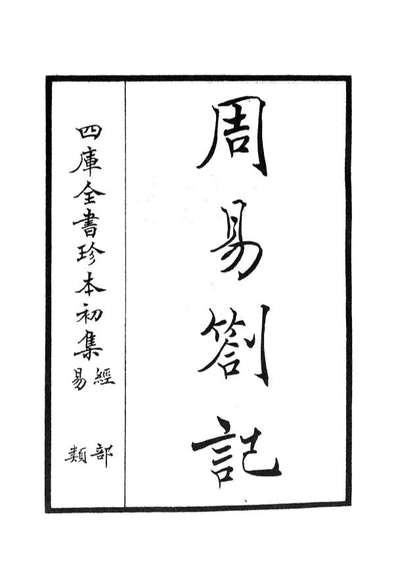 周易劄記
四庫全書珍本初集
經部
易類